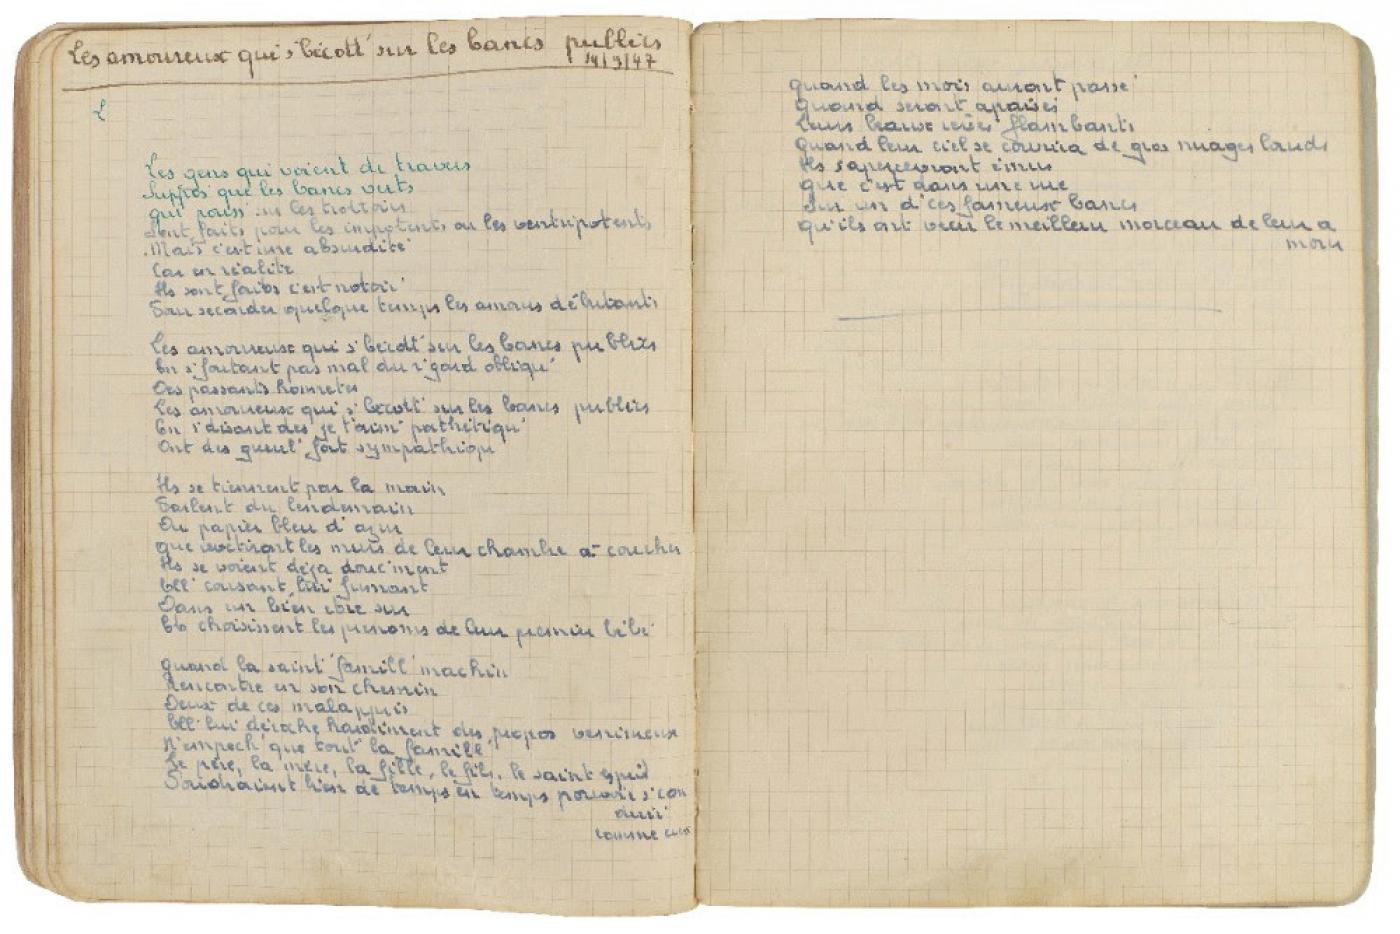 Les amoureux qui s'bécott' sur les bancs publics
14/3/47
L
Les gens qui voient de travers
Suppos' que les bancs verts
qui pouss' sur les trottoirs
Sont faits pour les impotents ou les ventripotents
Mais c'est une absurdité
Car en réalité
Ils sont faits c'est notoir'
Pour accorder quelque temps les amours débutants
Les amoureux qui s'bécott' sur les bancs publics
En s'foutant pas mal du r'gard obliqu'
Des passants honnetes
Les amoureux qui s'bécott' sur les bancs publics
En s'disant des je t'aim' pathétiqu'
Ont des gueul' fort sympathiqu
Ils se tiennent par la main
Parlent du lendemain
Du papier bleu d'azur
que revetiront les murs de leur chambre a coucher
Ils se voient déja douc'ment
Ell' cousant, lui fumant
Dans un bien etre sur
Et choisissent les prenoms de leur premier bébé
quand la saint' famill' machin
Rencontre en son chemin
Deux de ces malappris
Ell' lui décoche hardiment des propos venimeux
N'empech' que tout' la famill'
Le père, la mère, la fille, le fils, le saint esprit
Souhaient bien de temps en temps pouvoir s'con
duir'
comme eux
quand les mois auront passé
quand seront apaisés
Leurs beaux rêves flambants
quand leur ciel se couvrira de gros nuages lourds
Ils s'apercevront émus
que c'est dans une rue
Sur un d'ces fameux bancs
qu'ils ont vécu le meilleur morceau de leur a
mour